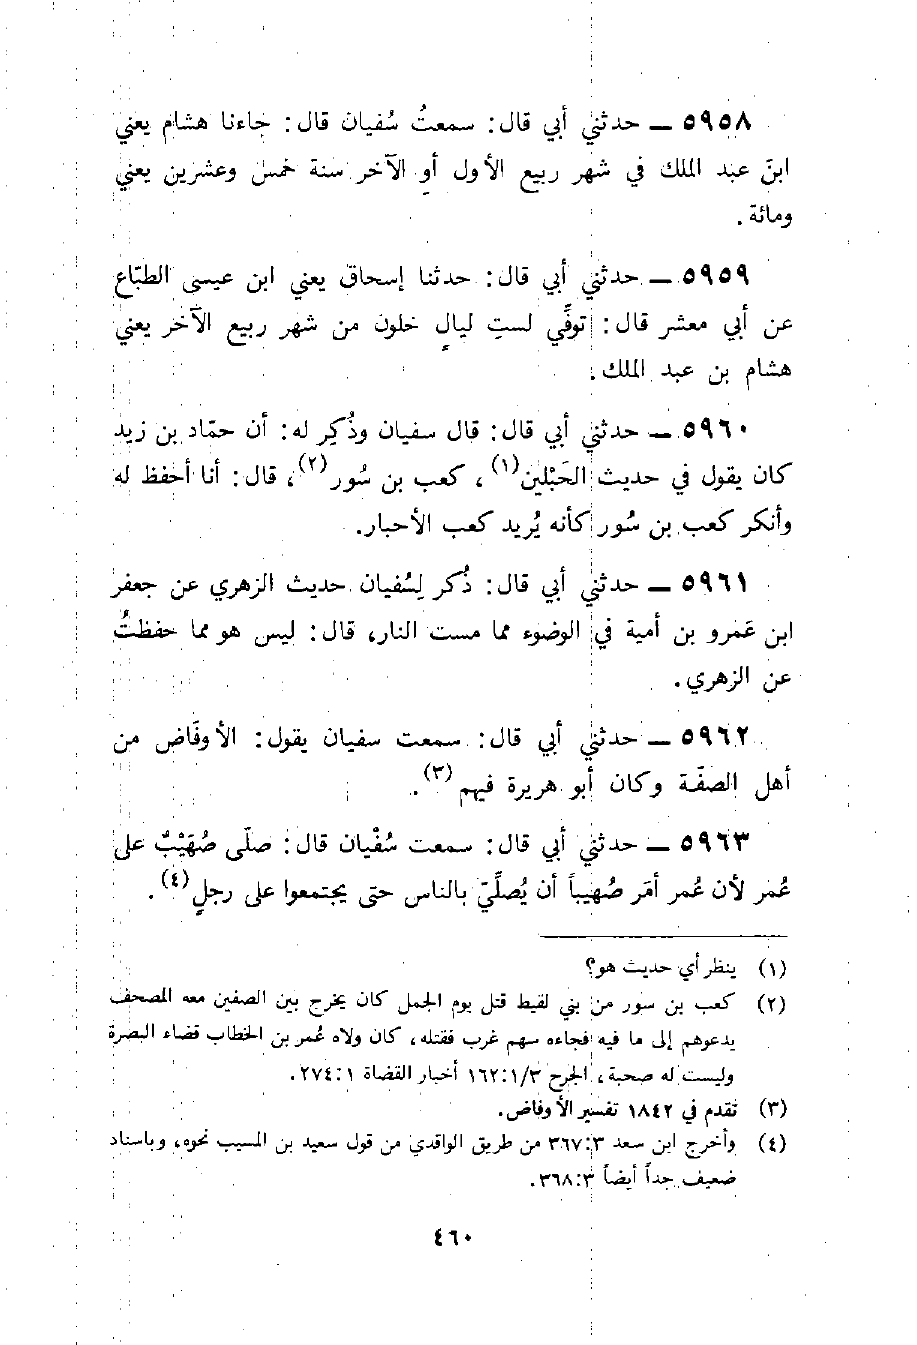 ٥٩٥٨ — حدثني أبي قال: سمعتُ سُفيان قال: جاءنا هشام يعني
ابنَ عبد الملك في شهر ربيع الأول أو الآخر سنة خمس وعشرين يعني
ومائة.
٥٩٥٩ — حدثني أبي قال: حدثنا إسحاق يعني ابن عيسى الطبّاع
عن أبي معشر قال: توفِّي لستِ ليالٍ خلون من شهر ربيع الآخر يعني
هشام بن عبد الملك.
٥٩٦٠ — حدثني أبي قال: قال سفيان وذُكِر له: أن حمّاد بن زيد
كان يقول في حديث الحَبْلين(١)، كعب بن سُور(٢)، قال: أنا أحفظ له
وأنكر كعب بن سُور كأنه يُريد كعب الأحبار.
٥٩٦١ — حدثني أبي قال: ذُكر لِسُفيان حديث الزهري عن جعفر
ابن عَمرو بن أمية في الوضوء مما مست النار، قال: ليس هو مما حفظتُ
عن الزهري.
٥٩٦٢ — حدثني أبي قال: سمعت سفيان يقول: الأوفَاض من
أهل الصفّة وكان أبو هريرة فيهم(٣).
٥٩٦٣ — حدثني أبي قال: سمعت سُفْيان قال: صلّى صُهَيْبٌ على
عُمر لأن عُمر أمَر صُهيباً أن يُصلِّيّ بالناس حتى يجتمعوا على رجلٍ(٤).
(١) ينظر أي حديث هو؟
(٢) كعب بن سور من بني لقيط قتل يوم الجمل كان يخرج بين الصفين معه المصحف
يدعوهم إلى ما فيه فجاءه سهم غرب فقتله، كان ولاه عُمر بن الخطاب قضاء البصرة
وليست له صحبة، الجرح ١٦٢:١/٣ أخبار القضاة ٢٧٤:١.
(٣) تقدم في ١٨٤٢ تفسير الأوفاض.
(٤) وأخرج ابن سعد ٣٦٧:٣ من طريق الواقدي من قول سعيد بن المسيب نحوه، وباسناد
ضعيف جداً أيضاً ٣٦٨:٣.
٤٦٠